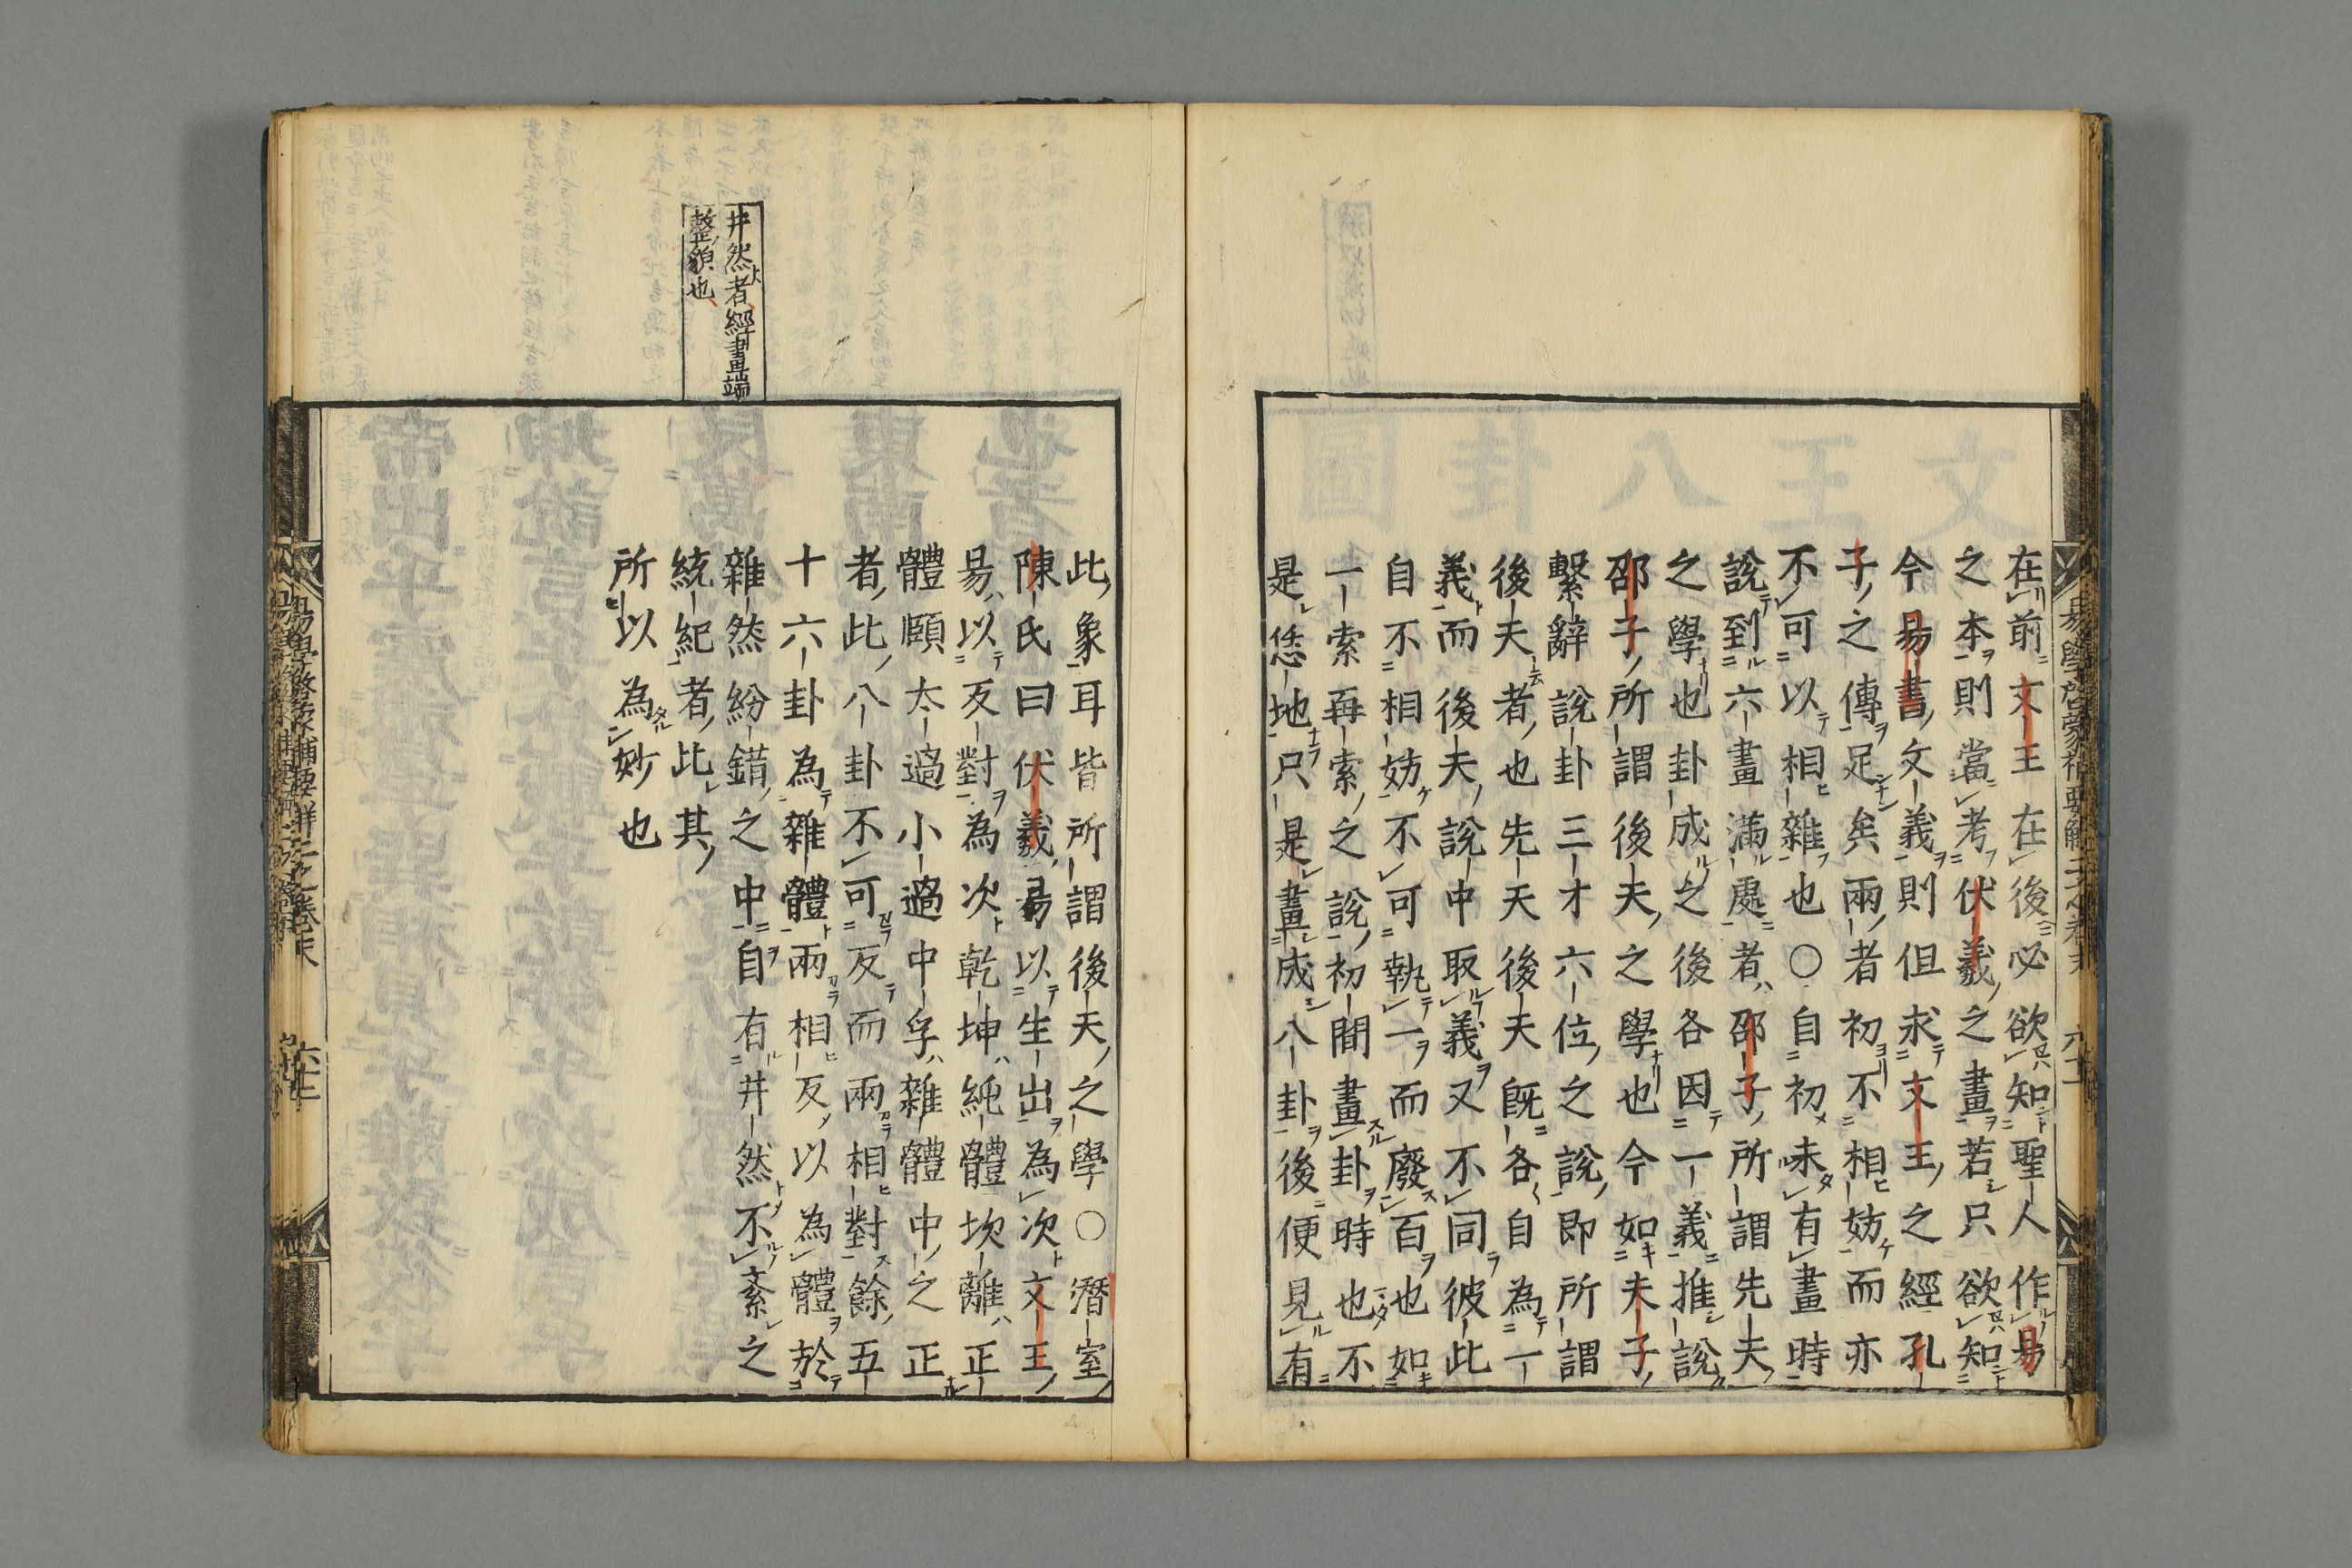 在前文王在後必欲知聖人作易
之本則當考伏羲之畫若只欲知
今易書文義則但求文王之經孔
子之傳足矣兩者初不相妨而亦
不可以相雜也〇自初未有畫時
說到六畫滿處者邵子所謂先天
之學也卦成之後各因一義推說
邵子所謂後天之學也今如朱子
繫辭說卦三才六位之說即所謂
後天者也先天後天既各自為一
義而後天說中取義又不同彼此
自不相妨不可執一而廢百也如
一索再索之說初間畫卦時也不
是恁地只是畫成八卦後便見有
井然者經畫端
整貌也
此象耳皆所謂後天之學〇潛室
陳氏曰伏羲易以生出為次文王
易以反對為次乾坤純體坎離正
體頤太過小過中孚雜體中之正
者此八卦不可反而兩相對餘五
十六卦為雜體兩相反以為體於
雜然紛錯之中自有井然不紊之
統紀者此其
所以為妙也